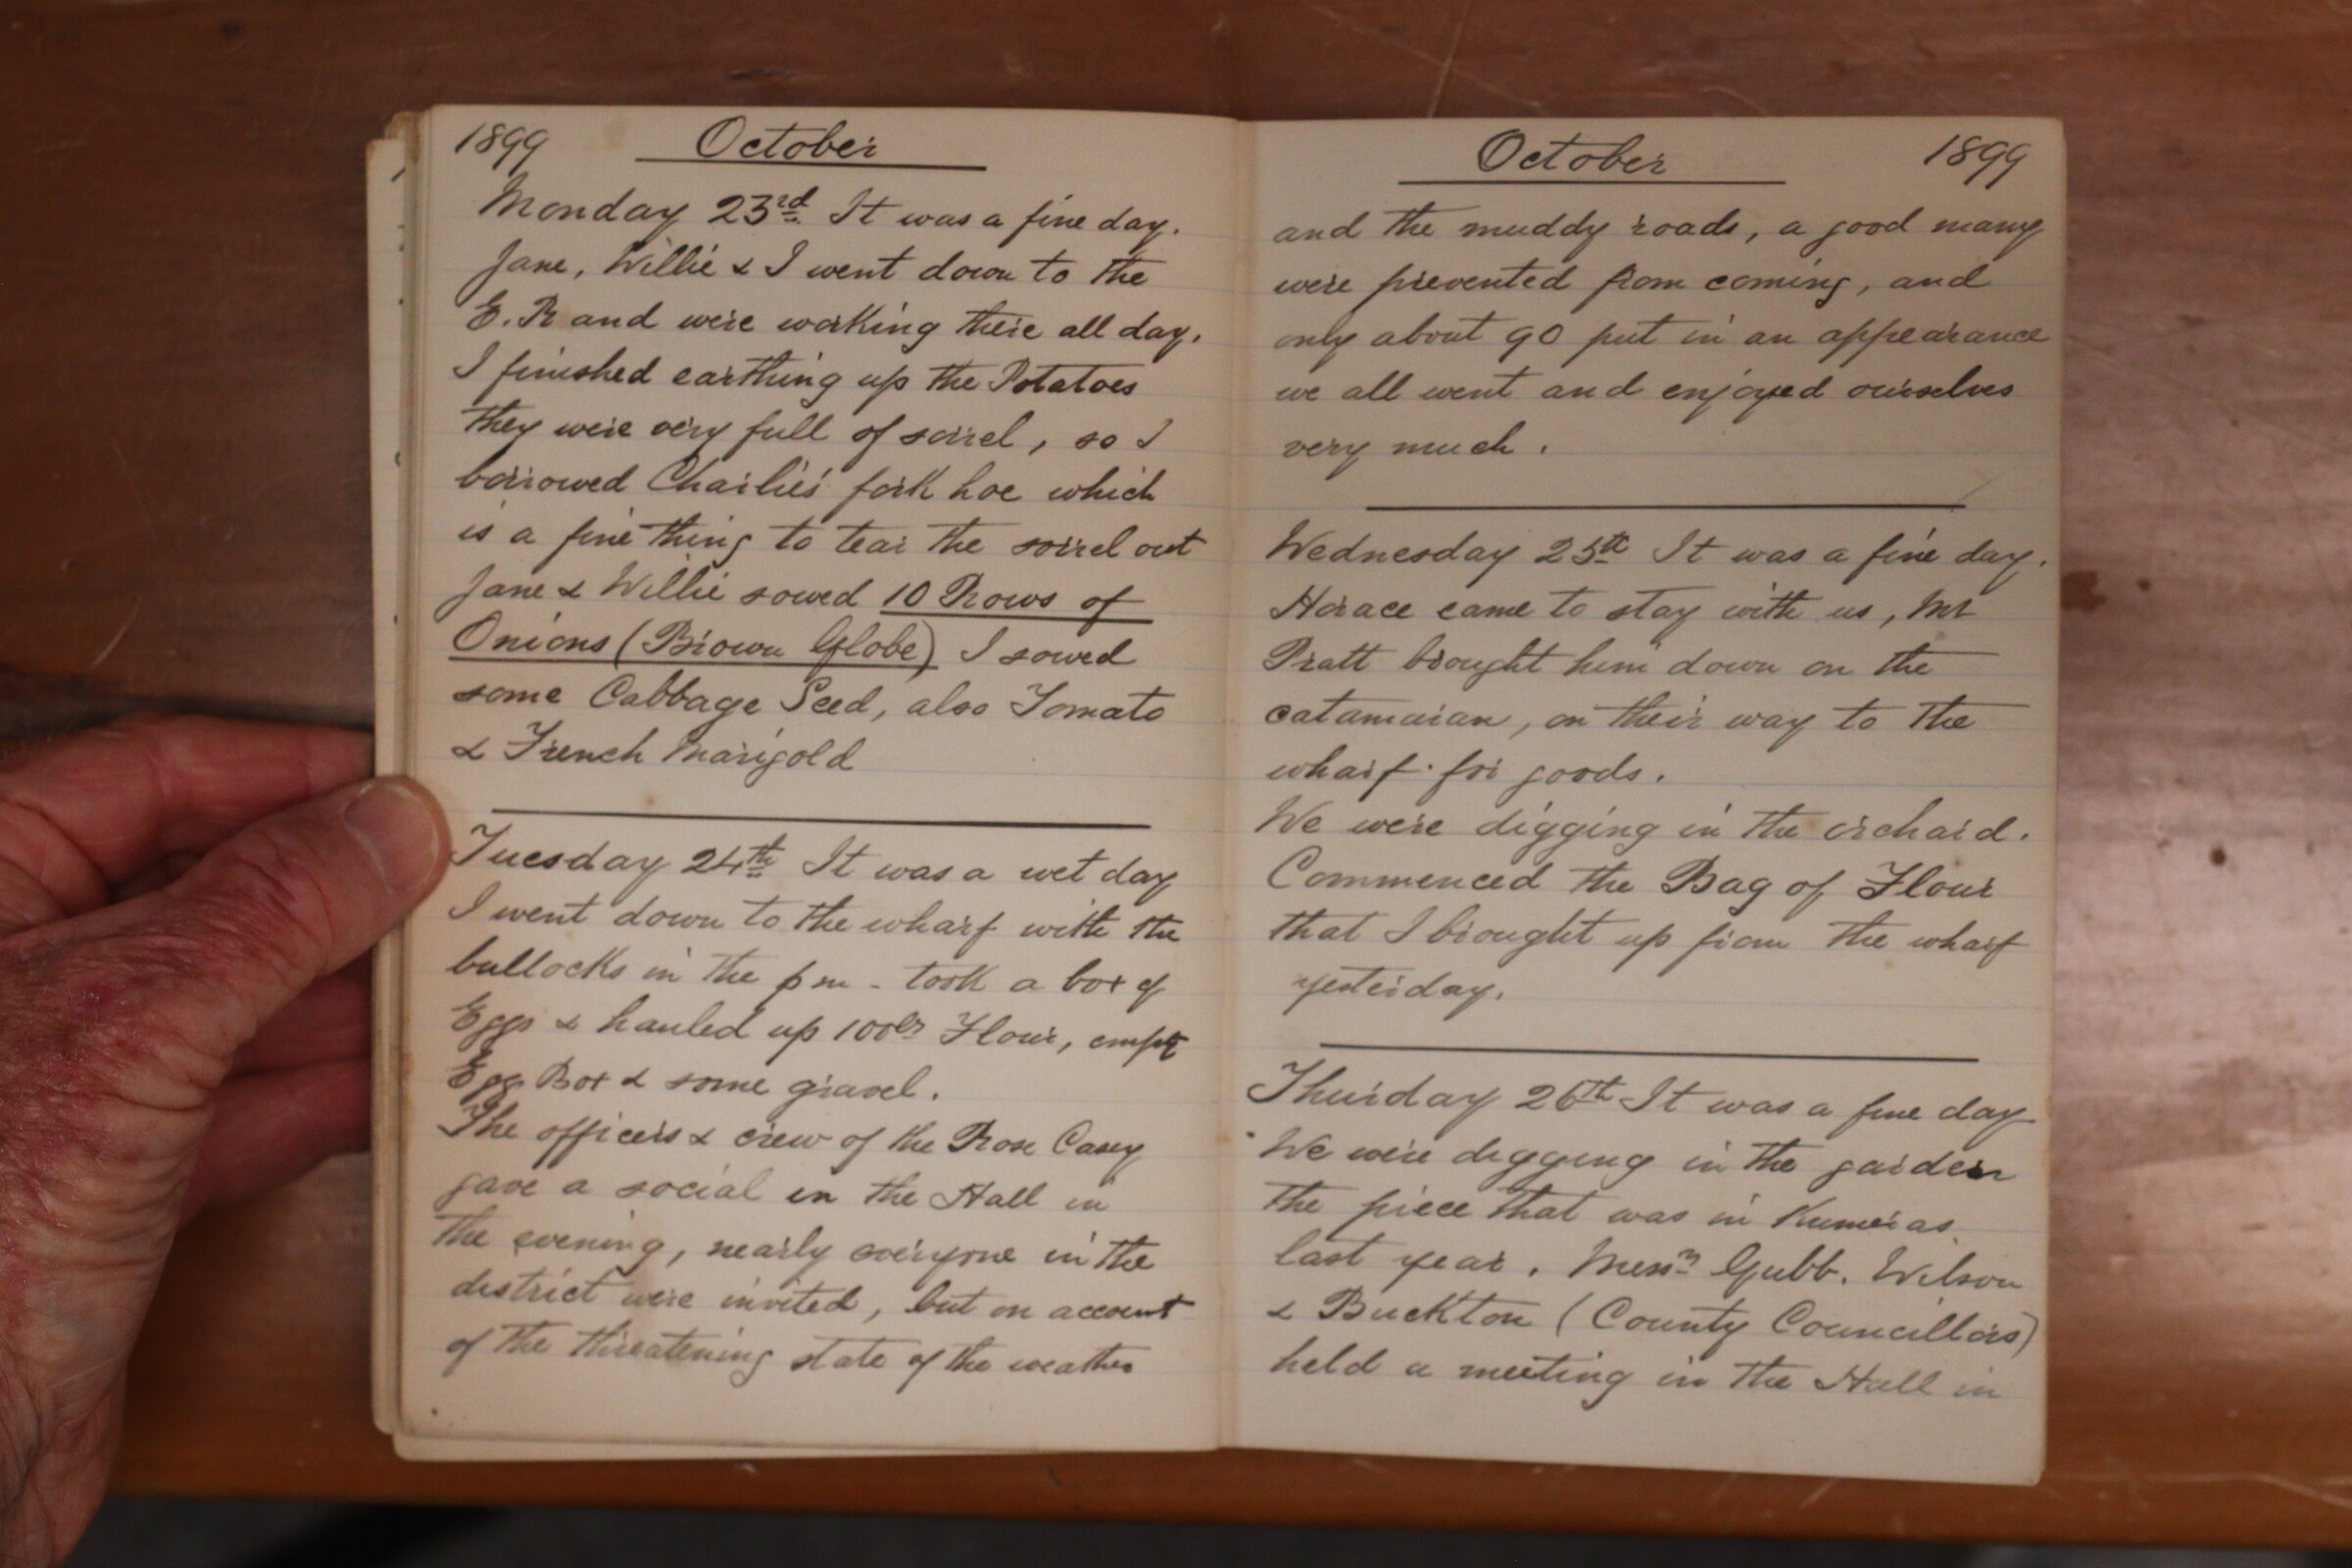 1899 October
Monday 23rd It was a fine day.
Jane, Willie & I went down to the
E. R and were working there all day.
I finished earthing up the Potatoes
they were very full of sorrel, so I
borrowed Charlie's fork hoe which
is a fine thing to tear the sorrel out
Jane & Willie sowed 10 Rows of
Onions (Brown Globe) I sowed
some Cabbage Seed, also Tomato
& French Marigold
Tuesday 24th It was a wet day
I went down to the wharf with the
bullocks in the pm - took a box of
Eggs & hauled up 100lbs Flour, empt
Egg Box & some gravel.
The officers & crew of the Rose Casey
gave a social in the Hall in
the evening, nearly everyone in the
district were invited, but on account
of the threatening state of the weather
October 1899
and the muddy roads, a good many
were prevented from coming, and
only about 90 put in an appearance
we all went and enjoyed ourselves
very much.
Wednesday 25th It was a fine day.
Horace came to stay with us, Mr
Pratt brought him down on the
catamaran, on their way to the
wharf for goods.
We were digging in the orchard.
Commenced the Bag of Flour
that I brought up from the wharf
yesterday.
Thursday 26th It was a fine day
We were digging in the garden
the piece that was in Kumeras
last year. Messrs Gubb. Wilson
& Buckton (County Councillors)
held a meeting in the Hall in